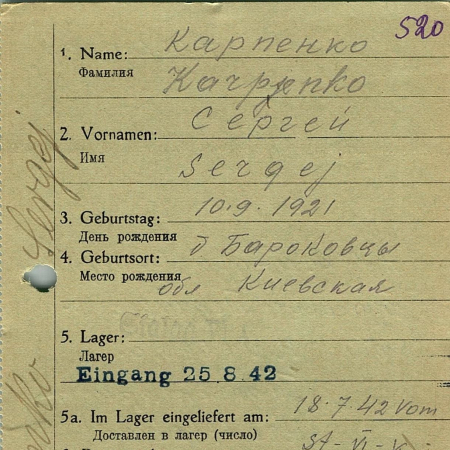 520
1. Name: Карпенко
Фамилия
2. Vornamen: Сергей
Имя Sergej
3. Geburtstag: 10.9.1921
День рождения
4. Geburtsort:
Место рождения обл Киевская
5. Lager:
Лагер
Eingang 25 8.42
5a. Im Lager eingeliefert am: 18.7.42 vom
Доставлен в лагер (число)
Sergej